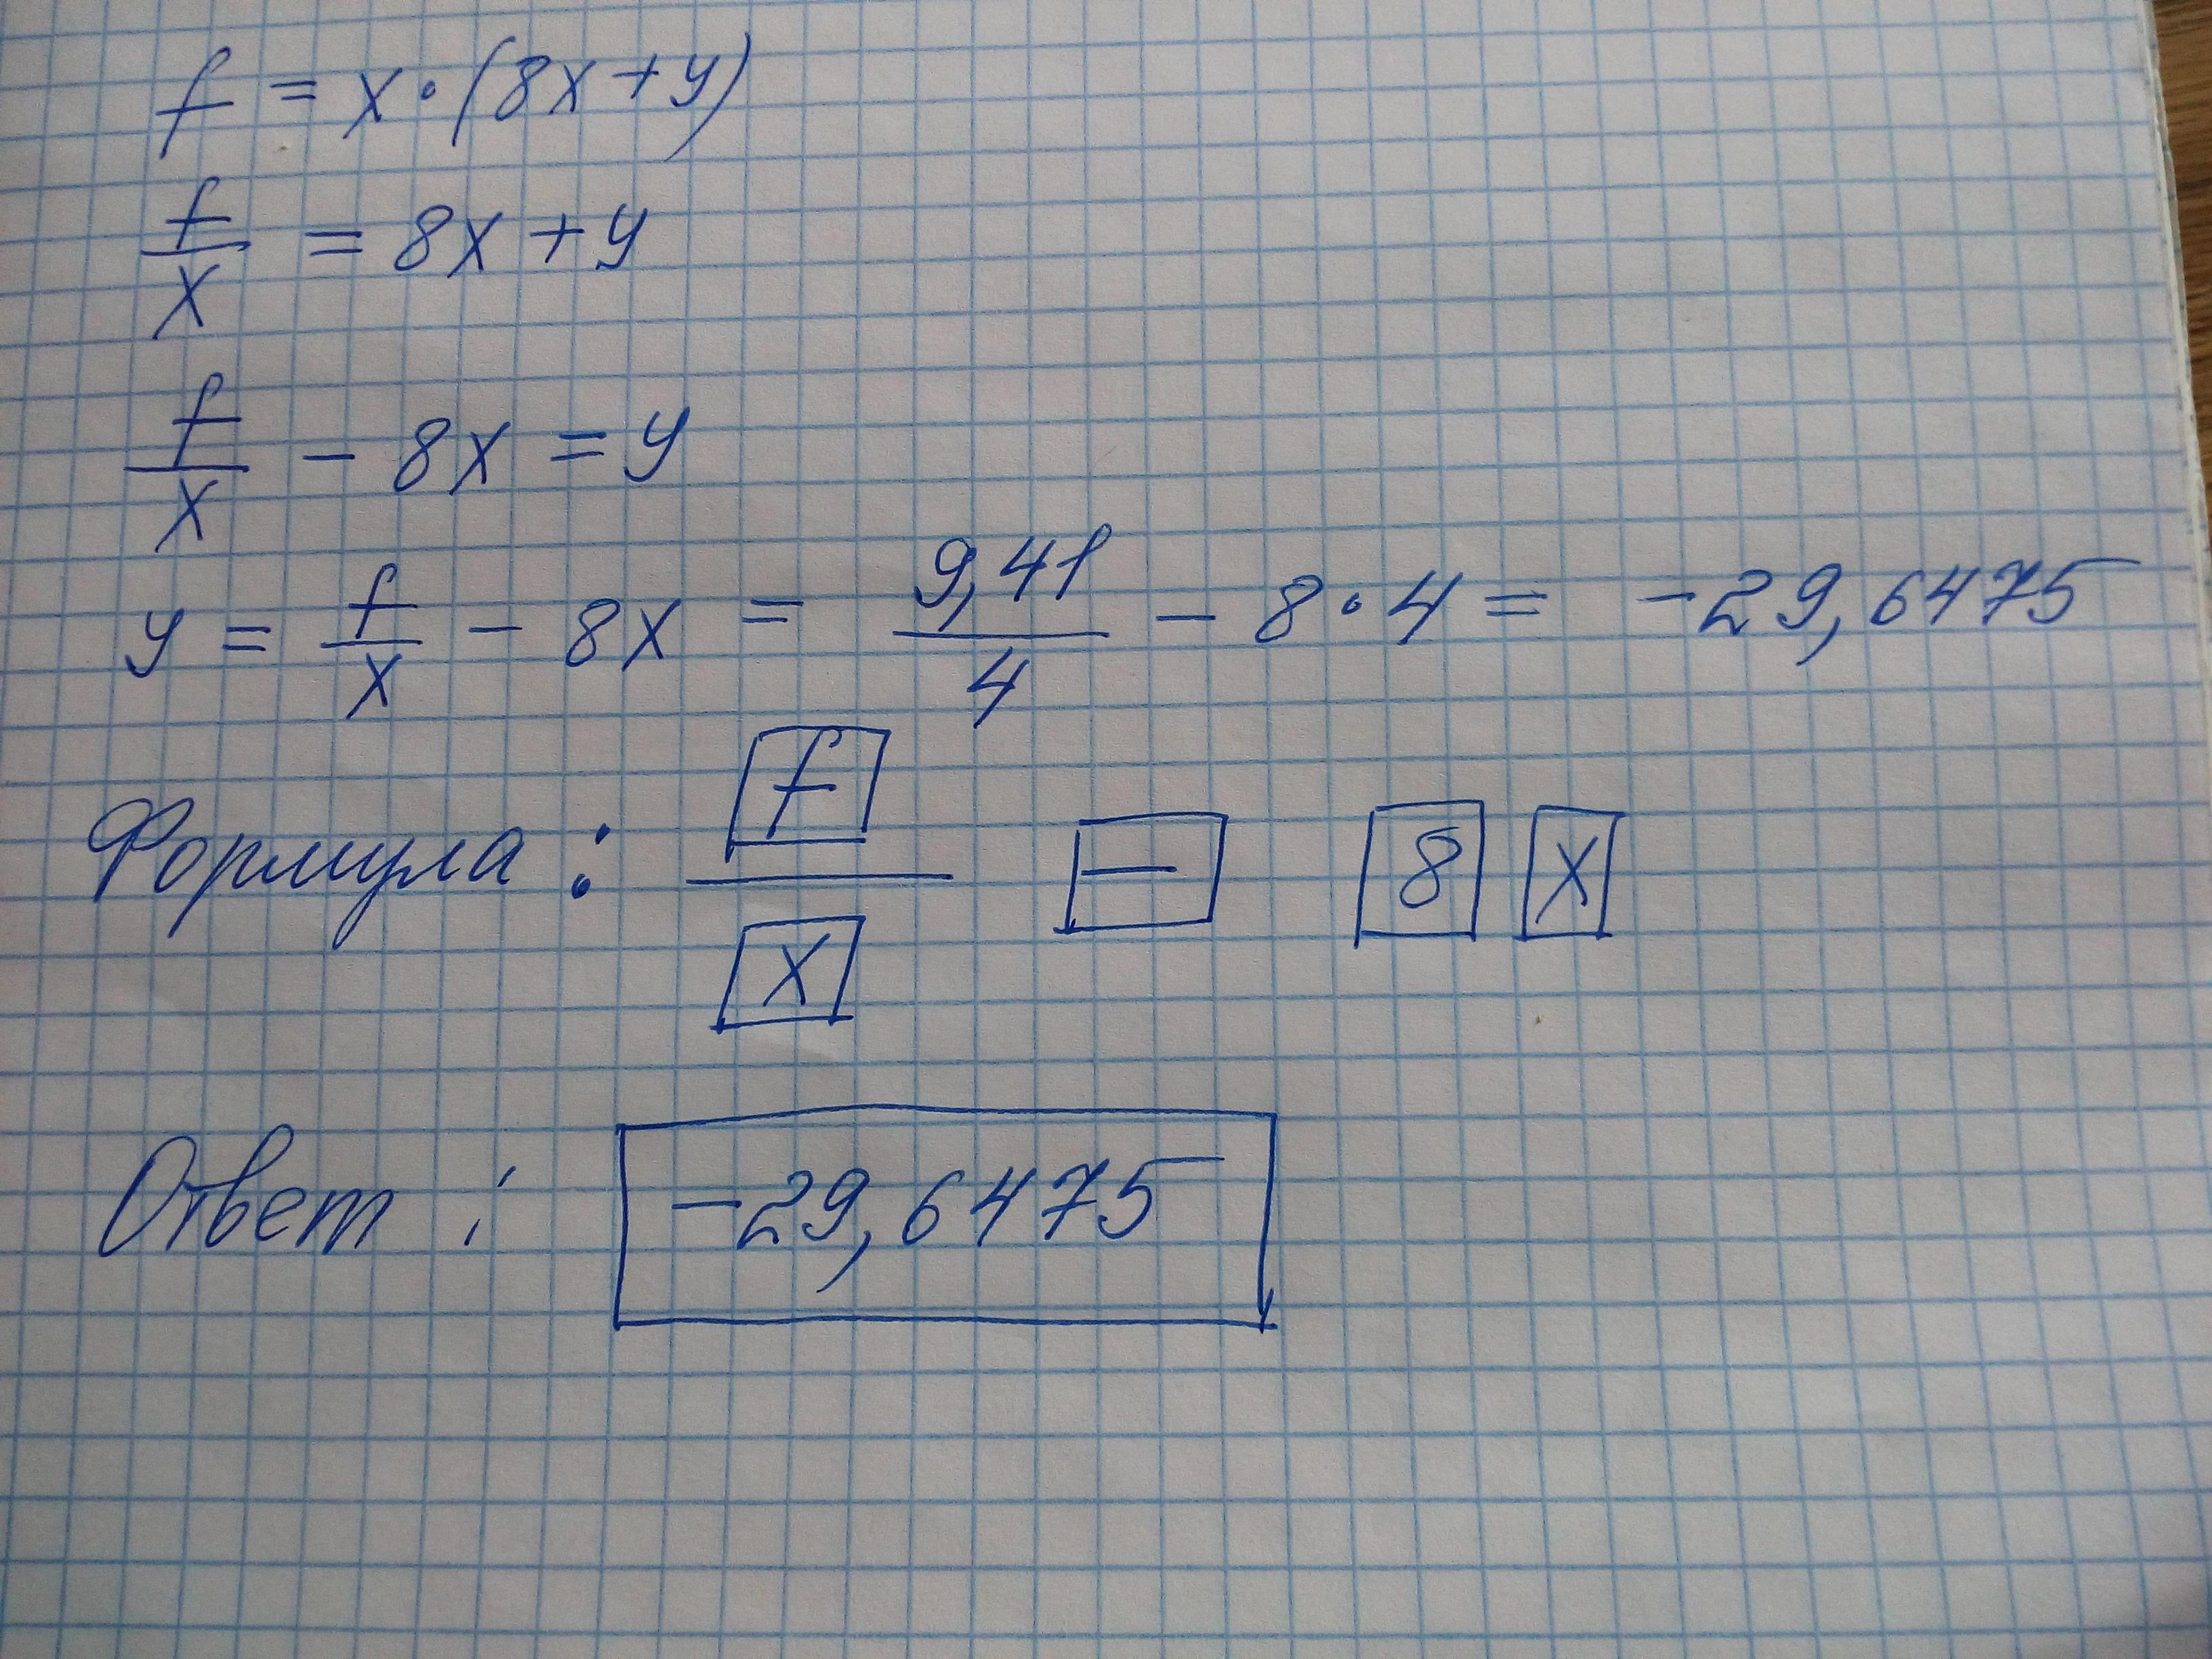 f = x · (8x + y)
f/x = 8x + y
f/x - 8x = y
y = f/x - 8x = 9,41/4 - 8 · 4 = -29,6475
Формула: f/x - 8 x
Ответ: -29,6475